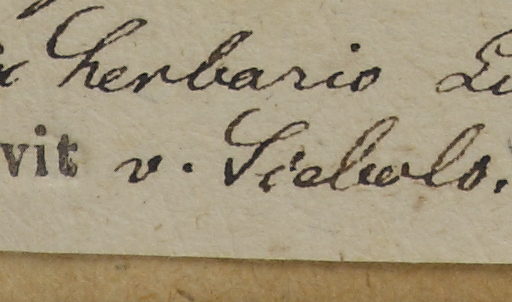 herbario
vit v. Siebold.